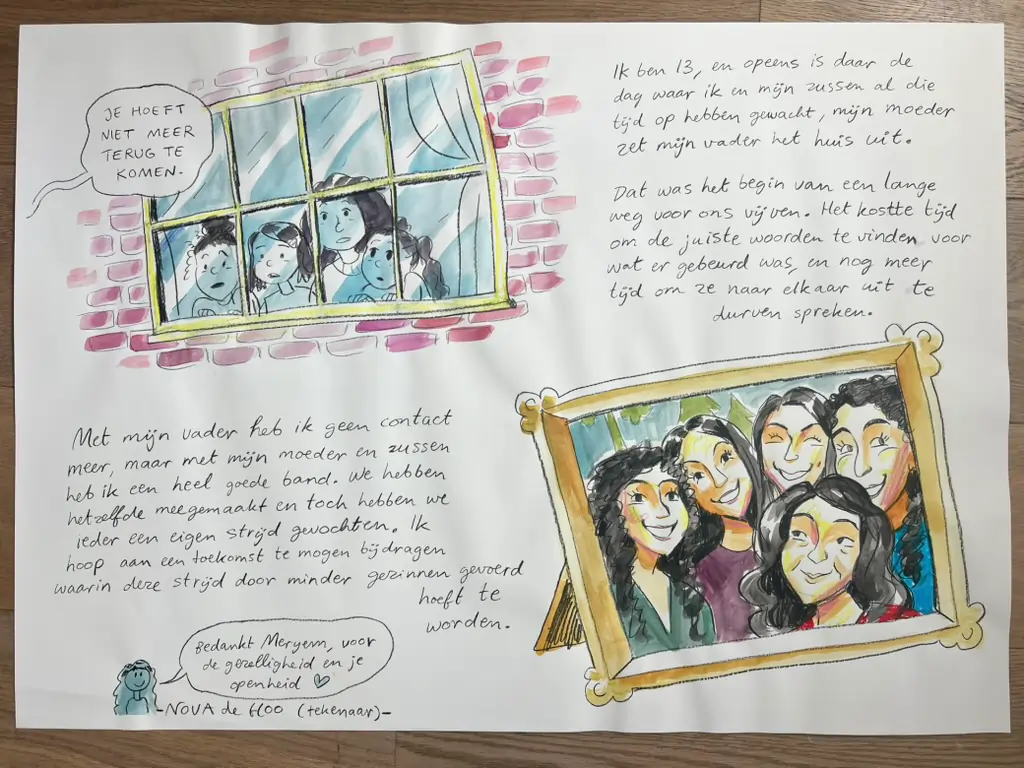 JE HOEFT
NIET MEER
TERUG TE
KOMEN.
Ik ben 13, en opeens is daar de
dag waar ik en mijn zussen al die
tijd op hebben gewacht, mijn moeder
zet mijn vader het huis uit.
Dat was het begin van een lange
weg voor ons vijven. Het kostte tijd
om de juiste woorden te vinden voor
wat er gebeurd was, en nog meer
tijd om ze naar elkaar uit te
durven spreken.
Met mijn vader heb ik geen contact
meer, maar met mijn moeder en zussen
heb ik een heel goede band. We hebben
hetzelfde meegemaakt en toch hebben we
ieder een eigen strijd gevochten. Ik
hoop aan een toekomst te mogen bijdragen
waarin deze strijd door minder gezinnen gevoerd
hoeft te
worden.
Bedankt Meryem, voor
de gezelligheid en je
openheid ♡
-NOVA de (tekenaar)-